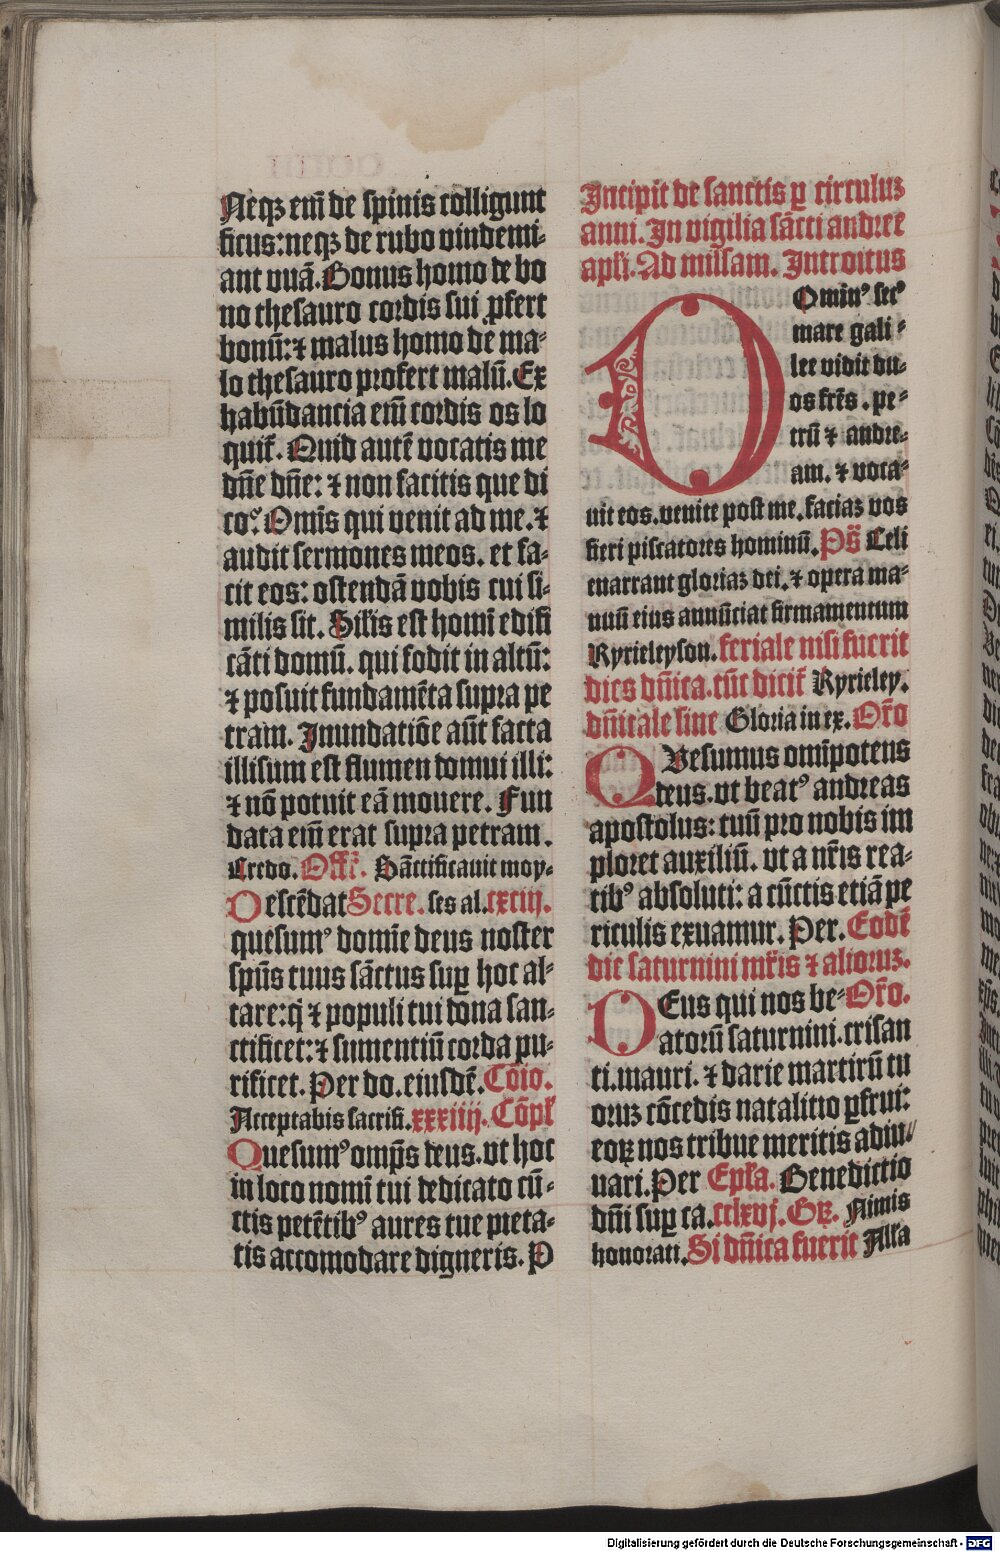 Neqꝫ em̄ de spinis colligunt
ficus: neqꝫ de rubo vindemi-
ant vuā. Bonus homo de bo
no thesauro cordis sui ꝓfert
bonū: ⁊ malus homo de ma-
lo thesauro profert malū. Ex
habūdancia em̄ cordis os lo
quit᷑. Quid autē vocatis me
dn̄e dn̄e: ⁊ non facitis que di
co. Omīs qui venit ad me. ⁊
audit sermones meos. et fa-
cit eos: ostendā vobis cui si-
milis sit. Sil'is est homī edifi
cāti domū. qui fodit in altū:
⁊ posuit fundamēta supra pe
tram. Inundatiōe aūt facta
illisum est flumen domui illi:
⁊ nō potuit eā mouere. Fun
data em̄ erat supra petram.
Credo. Off̄. Sāctificauit moy-
Descēdat Secre. ses al. cxciij.
quesumꝰ domīe deus noster
sp̄us tuus sāctus suꝑ hoc al-
tare: q̇ ⁊ populi tui dona san-
ctificet: ⁊ sumentiū corda pu-
rificet. Per do. eiusdē. Cōio.
Acceptabis sacrifi. xxxiiij. Cōpl'
Quesumꝰ omp̄s deus. vt hoc
in loco nomī tui dedicato cū-
ctis petētibꝰ aures tue pieta-
tis accomodare digneris. P
Incipit de sanctis ꝑ circuluꝫ
anni. In vigilia sācti andree
apl'i. Ad missam. Introitus
Dominꝰ secꝰ
mare gali-
lee vidit du-
os fr̄es. pe-
trū ⁊ andre-
am. ⁊ voca-
uit eos. venite post me. faciaꝫ vos
fieri piscatores hominū. Ps̄ Celi
enarrant gloriaꝫ dei. ⁊ opera ma-
nuū eius annūciat firmamentum
Kyrieleyson. feriale nisi fuerit
dies dn̄ica. tūc dicit᷑ Kyrieley.
dn̄icale sine Gloria in ex. Or̄o
QVesumus omīpotens
deus. vt beatꝰ andreas
apostolus: tuū pro nobis im
ploret auxiliū. vt a nr̄is rea-
tibꝰ absoluti: a cūctis etiā pe
riculis exuamur. Per. Eodē
die saturnini mr̄is ⁊ alioruꝫ.
DEus qui nos be- Or̄o.
atorū saturnini. crisan
ti. mauri. ⁊ darie martirū tu
oruꝫ cōcedis natalitio ꝑfrui:
eoꝝ nos tribue meritis adiu-
uari. Per Epl'a. Benedictio
dn̄i suꝑ ca. cclxvj. Gꝝ. Nimis
honorati. Si dn̄ica fuerit Alla
Digitalisierung gefördert durch die Deutsche Forschungsgemeinschaft - DFG